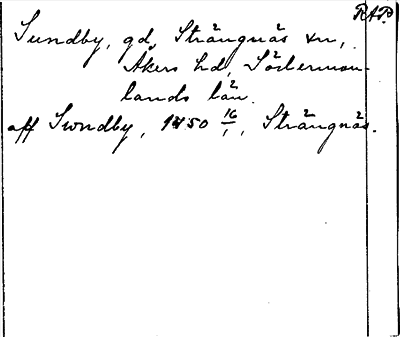 RAP.
Sundby, gd, Strängnäs sn,
Åkers hd, Söderman-
lands län.
aff Swndby, 1450 16/1, Strängnäs.